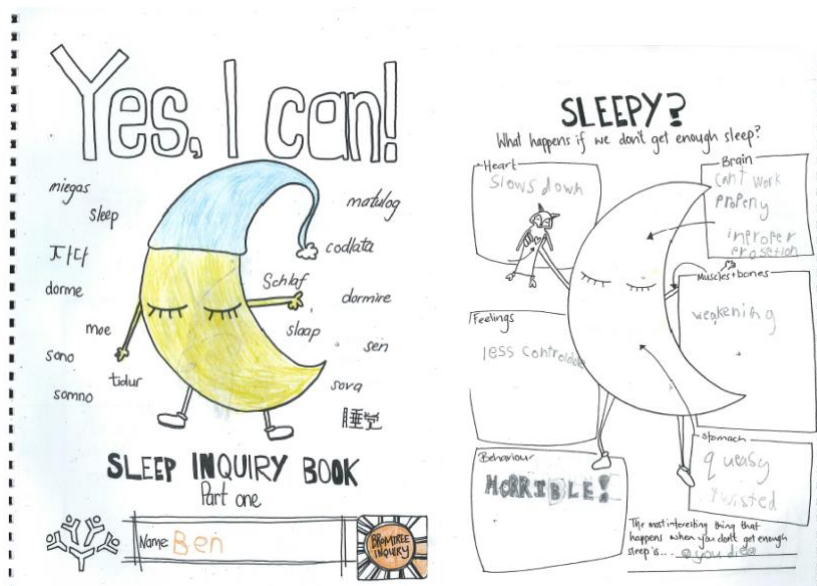 Yes, I can!
miegas
sleep
자다
dorme
moe
sano
somno
tidur
matulog
codlata
Schlaf
dormire
slaap
sen
sova
睡覺
SLEEP INQUIRY BOOK
Part one
Name Ben
BROMTREE
INQUIRY
SLEEPY?
What happens if we don't get enough sleep?
Heart
Slows down
Brain
can't work
properly
improper
Muscles + bones
weakening
Feelings
less
Behaviour
HORRIBLE!
Stomach
queasy
twisted
The most interesting thing that
happens when you don't get enough
sleep is... you die